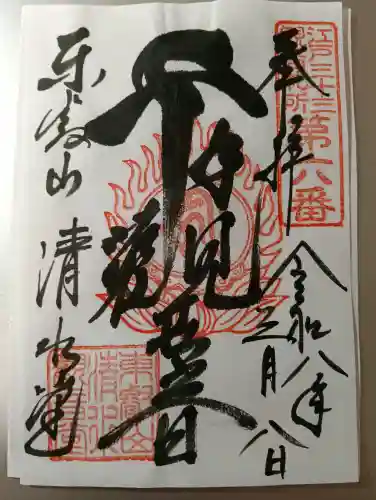 江戸三十三観音札所
第六番
奉拝
令和八年
三月八日
千手観世音
東叡山 清水堂
東叡山
清水堂